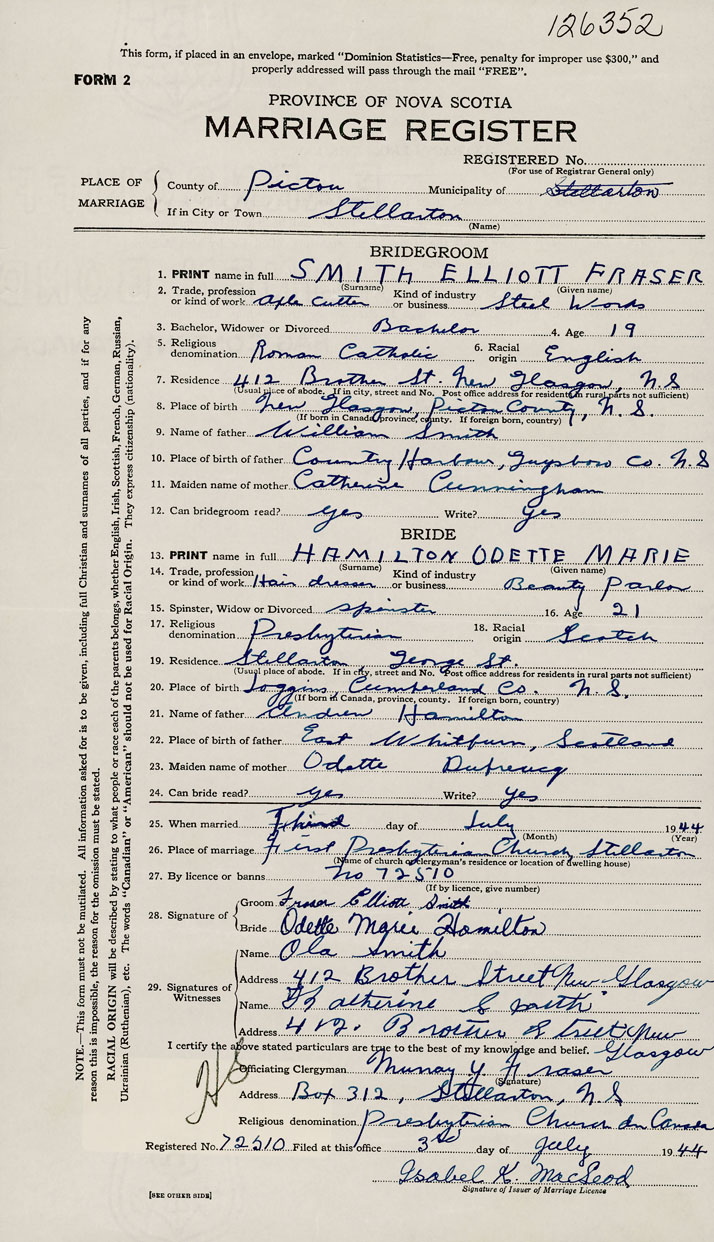 126352
This form, if placed in an envelope, marked "Dominion Statistics—Free, penalty for improper use $300," and
properly addressed will pass through the mail "FREE".
FORM 2
PROVINCE OF NOVA SCOTIA
MARRIAGE REGISTER
REGISTERED No.
(For use of Registrar General only)
PLACE OF MARRIAGE
County of Pictou Municipality of Stellarton
If in City or Town Stellarton
(Name)
BRIDEGROOM
1. PRINT name in full SMITH ELLIOTT FRASER
(Surname) (Given name)
2. Trade, profession or kind of work Axle Cutter Kind of industry or business Steel Works
3. Bachelor, Widower or Divorced Bachelor 4. Age 19
5. Religious denomination Roman Catholic 6. Racial origin English
7. Residence 412 Brother St. New Glasgow, N.S
(Usual place of abode. If in city, street and No. Post office address for residents in rural parts not sufficient)
8. Place of birth New Glasgow, Pictou County, N.S.
(If born in Canada, province, county. If foreign born, country)
9. Name of father William Smith
10. Place of birth of father Country Harbour, Guysboro Co. N.S
11. Maiden name of mother Catherine Cunningham
12. Can bridegroom read? yes Write? yes
BRIDE
13. PRINT name in full HAMILTON ODETTE MARIE
(Surname) (Given name)
14. Trade, profession or kind of work Hair dresser Kind of industry or business Beauty Parlor
15. Spinster, Widow or Divorced Spinster 16. Age 21
17. Religious denomination Presbyterian 18. Racial origin Scotch
19. Residence Stellarton George St.
(Usual place of abode. If in city, street and No. Post office address for residents in rural parts not sufficient)
20. Place of birth Joggins, Cumberland Co. N.S.
(If born in Canada, province, county. If foreign born, country)
21. Name of father Andrew Hamilton
22. Place of birth of father East Whitburn, Scotland
23. Maiden name of mother Odette
24. Can bride read? yes Write? yes
25. When married Third day of July 1944
(Month) (Year)
26. Place of marriage First Presbyterian Church, Stellarton
(Name of church or clergyman's residence or location of dwelling house)
27. By licence or banns No 72510
(If by licence, give number)
28. Signature of
Groom Fraser Elliott Smith
Bride Odette Marie Hamilton
29. Signatures of Witnesses
Name Ola Smith
Address 412 Brother Street New Glasgow
Name Katherine Smith
Address 412. Brother Street New Glasgow
I certify the above stated particulars are true to the best of my knowledge and belief.
Officiating Clergyman Murray Y. Fraser
(Signature)
Address Box 312, Stellarton, N.S
Religious denomination Presbyterian Church in Canada
Registered No. 72510 Filed at this office 3rd day of July 1944
Isabel K. MacLeod
Signature of Issuer of Marriage License
[SEE OTHER SIDE]
NOTE.—This form must not be mutilated. All information asked for is to be given, including full Christian and surnames of all parties, and if for any
reason this is impossible, the reason for the omission must be stated.
RACIAL ORIGIN will be described by stating to what people or race each of the parents belongs, whether English, Irish, Scottish, French, German, Russian,
Ukrainian (Ruthenian), etc. The words "Canadian" or "American" should not be used for Racial Origin. They express citizenship (nationality).